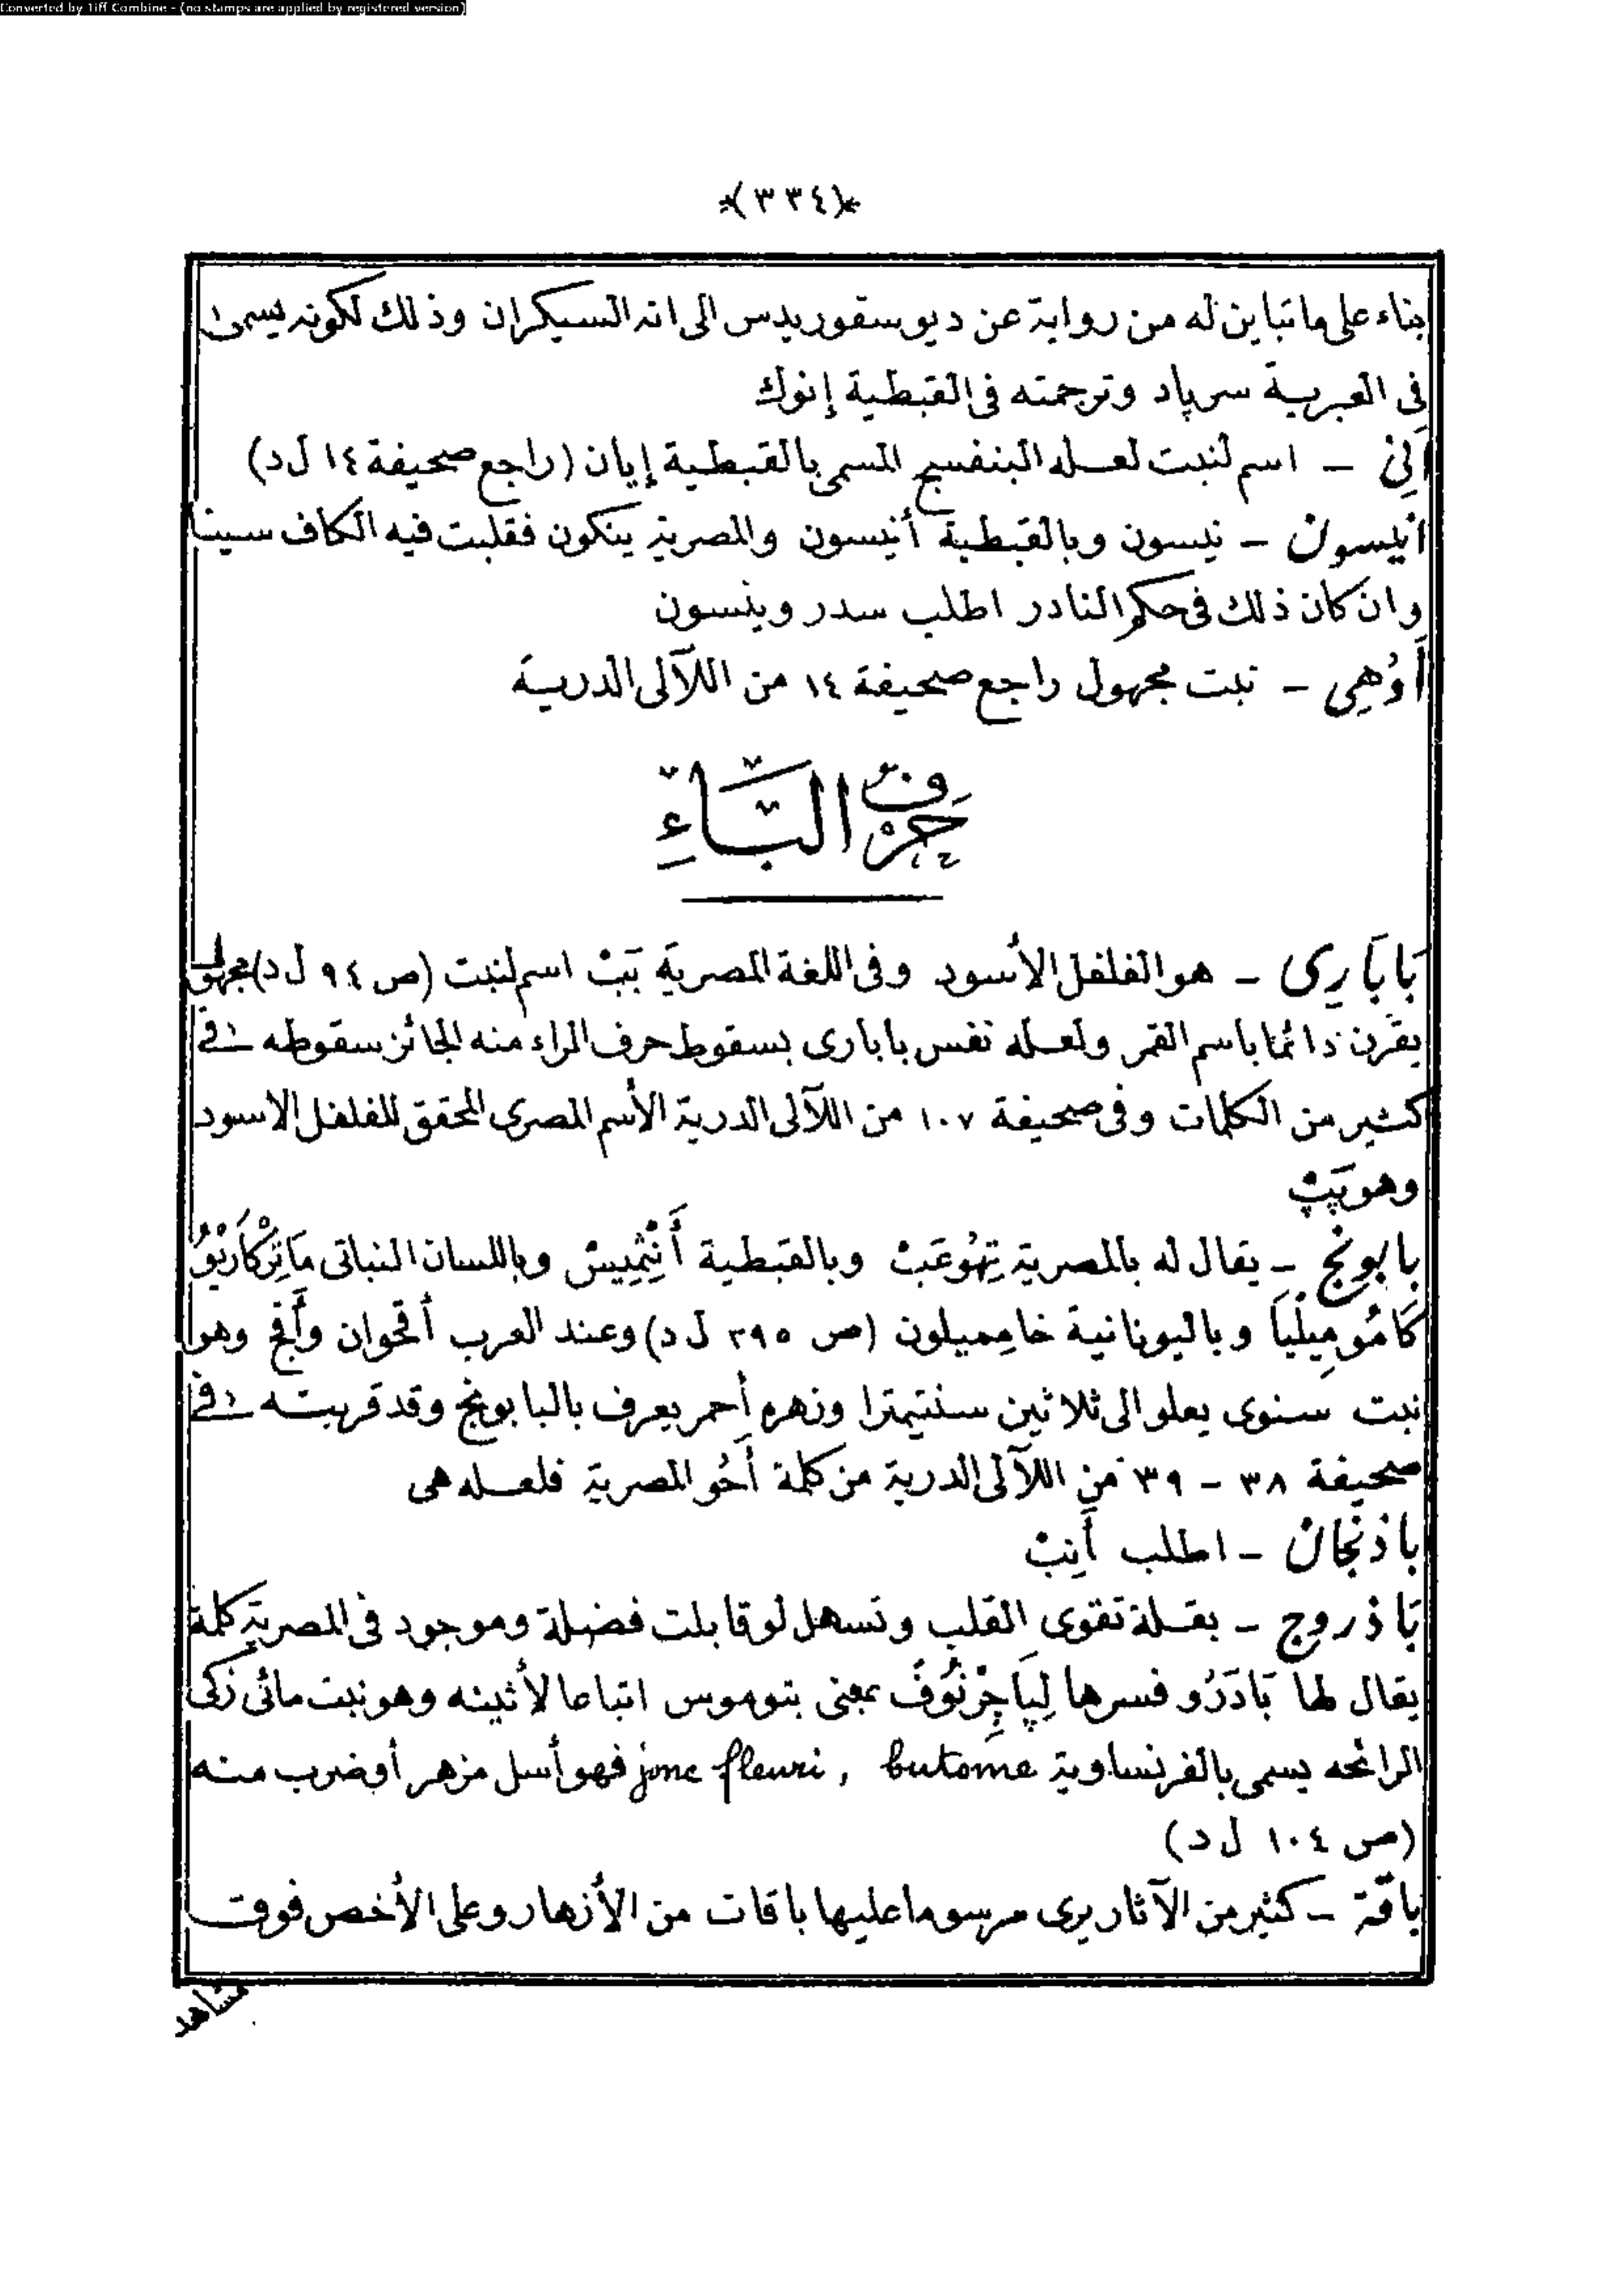 Converted by Tiff Combine - (no stamps are applied by registered version)
*(٣٣٤)*
بناء على ما تباين له من رواية عن ديوسقوريدس الى انه السيكران وذلك لكونه يسمى
فى العبرية سرپاد وترجمته فى القبطية إنوك
اَلِنْ - اسم لنبت لعله البنفسج المسمى بالقبطية إيان (راجع صحيفة ١٤ ل د)
انيسون - نيسون وبالقبطية أنيسون والمصرية ينكون فقلبت فيه الكاف سينا
وان كان ذلك فى حكم النادر اطلب سدر وينسون
اَوُهِى - نبت مجهول راجع صحيفة ١٤ من اللآلى الدرية
حَرْفُ البَّاءِ
بَابَارِى - هو الفلفل الأسود وفى اللغة المصرية بَبْ اسم لنبت (ص ٩٤ ل د) مجهول
يقرن دائما باسم القمر ولعله نفس بابارى بسقوط حرف الراء منه الجائز سقوطه فى
كثير من الكلمات وفى صحيفة ١٠٧ من اللآلى الدرية الأسم المصرى المحقق للفلفل الاسود
وهو پَپْ
بابونج - يقال له بالمصرية تِهُوعَبْ وبالقبطية أَنِثْمِيسْ وباللسان النباتى مَاتِرْكَارْيُو
كَامُومِيلْيَا وباليونانية خامميلون (ص ٢٩٥ ل د) وعند العرب أقحوان وأَقح وهو
نبت سنوى يعلو الى ثلاثين سنتيمترا وزهره أحمر يعرف بالبابونج وقد قربته فى
صحيفة ٣٨ - ٣٩ من اللآلى الدرية من كلمة أَحُو المصرية فلعله هى
باذنجان - اطلب أَنِبْ
بَاذروج - بقلة تقوى القلب وتسهل لو قابلت فضلة وموجود فى المصرية كلمة
يقال لها بَادَرُو فسرها لِيپَاجِرْنُوفْ بمعنى بتوموس اتباعا لأثينه وهو نبت مائى زكى
الرائحه يسمى بالفرنساوية jonc fleuri, butome فهو أسل مزهر أو ضرب منه
(ص ١٠٤ ل د)
باقة - كثير من الآثار يرى مرسوما عليها باقات من الأزهار وعلى الأخص فوق
مشاهد